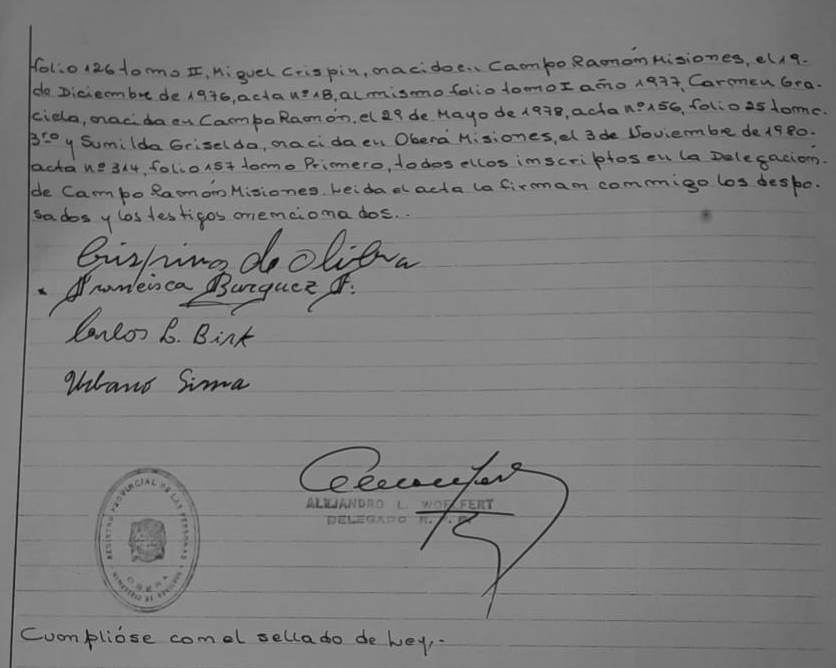 folio 126 tomo II, Miguel Crispin, nacido en Campo Ramón Misiones, el 19-
de Diciembre de 1976, acta nº 18, al mismo folio tomo I año 1977, Carmen Gra-
ciela, nacida en Campo Ramón, el 29 de Mayo de 1978, acta nº 156, folio 25 tomo
3ro y Sumilda Griselda, nacida en Oberá Misiones, el 3 de Noviembre de 1980-
acta nº 314, folio 157 tomo Primero, todos ellos inscriptos en la Delegacion-
de Campo Ramón Misiones. Leida el acta la firman conmigo los despo-
sados y los testigos mencionados..
de Olibra
Francisca Burguez F.
Carlos L. Birk
Urbano Sima
ALEJANDRO L. WOELFERT
DELEGADO R. P. P.
REGISTRO PROVINCIAL DE LAS PERSONAS
OBERA
Cumplióse con el sellado de Ley.-